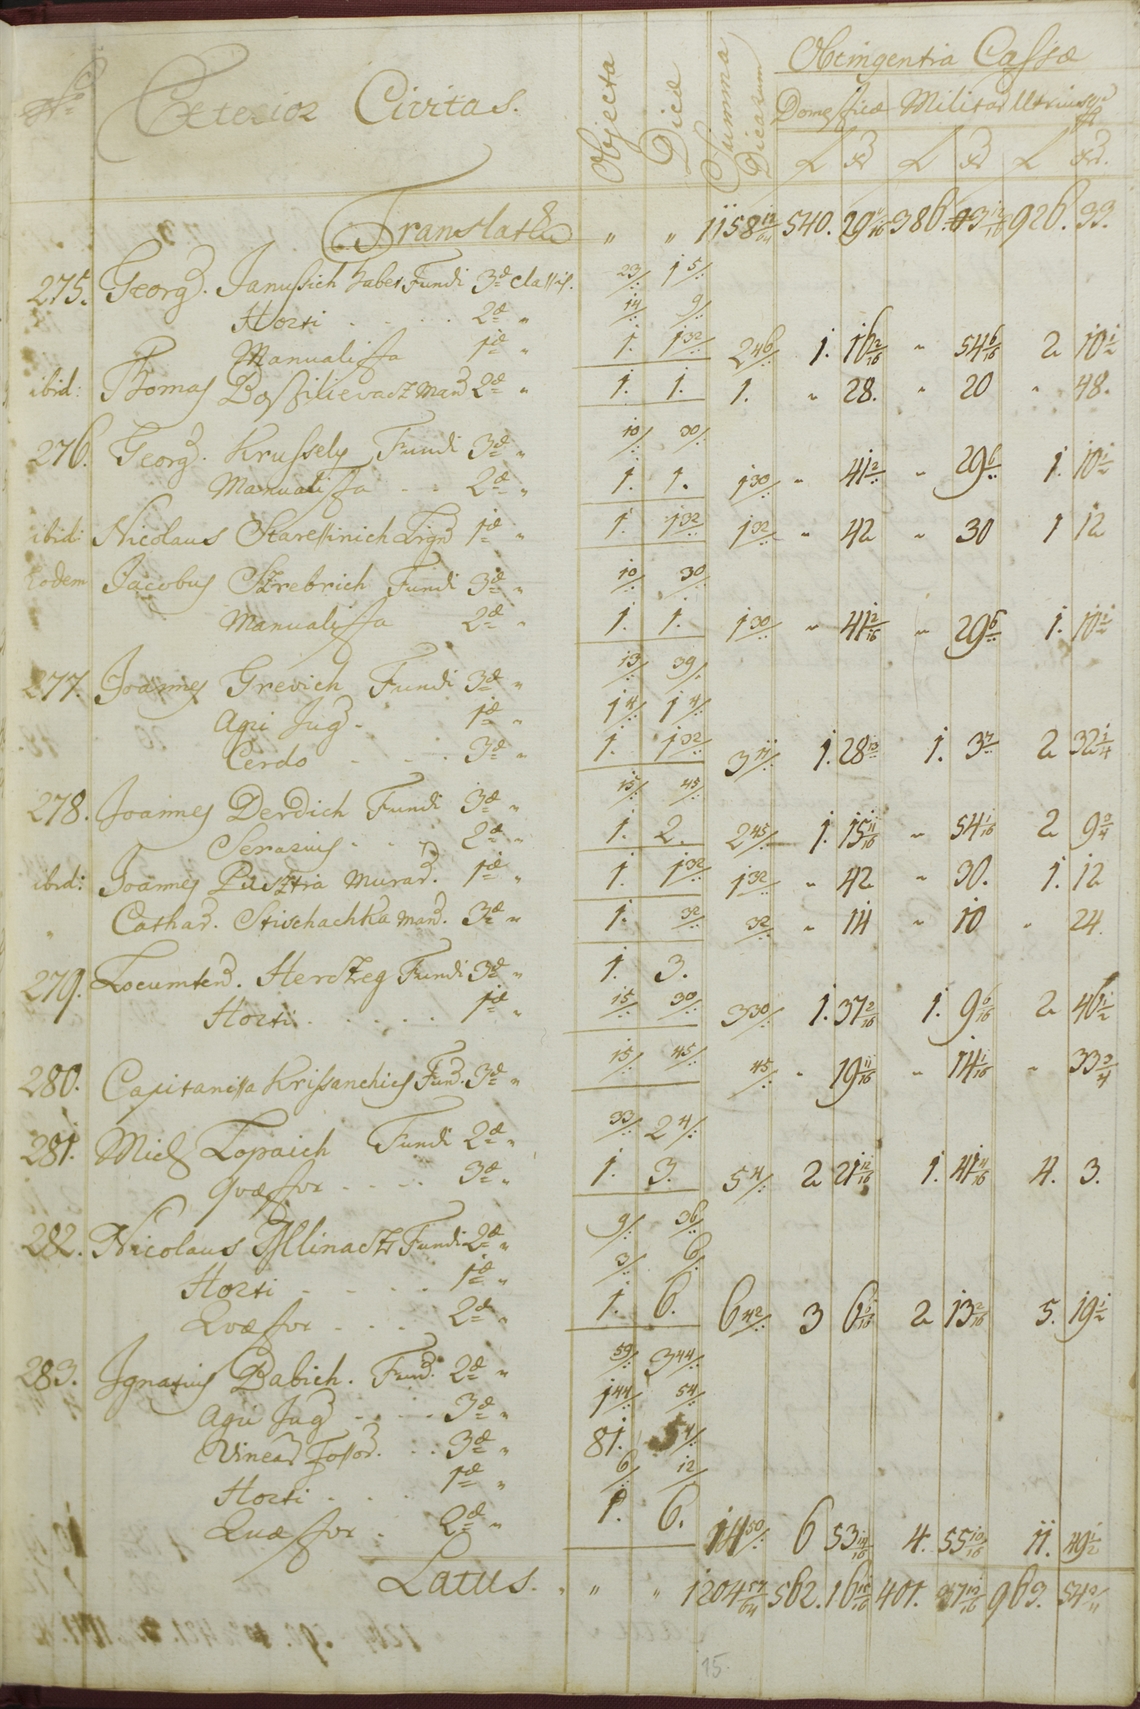 Nro Exterior Civitas. Objecta Dicæ Summa Dicarum Obtingentia Cassæ
Domesticæ Militar Utriusque
f xr f xr f xr.
Translatum " " 1158 12/64 540. 29 386. 926. 33.
275. Georg. Janussich habet Fundi 3æ classis. 23/ 15/
Horti . . . . 2æ " 14/ 9/
Manualista 1æ " 1. 1 32/ 2 46/ 1. 16 2/16 " 54 6/16 2 10 1/2
ibid: Thomas Man 2æ " 1. 1. 1. " 28. " 20 " 48.
276. Georg. Krussely Fundi 3æ " 10/ 30/
Manualista . . 2æ " 1. 1. 1 30/ " 41 2/ " 29 6/ 1. 10 1/2
ibid: Nicolaus Staressinich 1æ " 1. 1 32/ 1 32/ " 42 " 30 1 12
eodem Jacobus Szrebrich Fundi 3æ " 10/ 30/
Manualista 2æ " 1. 1. 1 30/ " 41 2/16 " 29 6/ 1. 10 1/2
277. Joannes Grevich Fundi 3æ " 13/ 39/
Agri Jug . 1æ " 1 4/ 1 4/
Cerdo . . . 3æ " 1. 1 32/ 3 11/ 1. 28 13/ 1. 3 7/ 2 32 1/4
278. Joannes Derdich Fundi 3æ " 15/ 45/
Serarius . . . 2æ " 1. 2. 2 45/ 1. 15 11/16 " 54 1/16 2 9 3/4
ibid: Joannes Pusztra Murar. 1æ " 1. 1 32/ 1 32/ " 42 " 30. 1. 12
" Cathar. Stischachka Man. 3æ " 1. 32/ 32/ " 14 " 10 " 24.
279. Locumten. Herszeg Fundi 3æ " 1. 3.
Horti . . . . . 1æ " 15/ 30/ 3 30/ 1. 37 2/16 1. 9 6/16 2 46 1/2
280. Capitanissa Krisanchich Fund. 3æ " 15/ 45/ 45/ " 19 11/16 " 14 1/16 " 33 3/4
281. Mich Lopaich Fundi 2æ " 33/ 2 4/
Quæstor . . . . 3æ " 1. 3. 5 4/ 2 21 12/16 1. 41 4/16 4. 3.
282. Nicolaus Illinacz Fundi 2æ " 9/ 36/
Horti . . . . 1æ " 3/ 6/
Quæstor . . . . 2æ " 1. 6. 6 42/ 3 6 2 13 2/16 5. 19 1/2
283. Ignatius Babich. Fund. 2æ " 59/ 3 44/
Agri Jug . . . . 3æ " 1 44/ 54/
Vinear Fossor. . . 3æ " 81. 5 4/
Horti . . . 1æ " 6/ 12/
Quæstor . 2æ " 1. 6. 14 50/ 6 53 14/16 4. 55 10/16 11. 49 1/2
Latus. " " " 1204 57/64 562. 16 401. 963. 54
15.